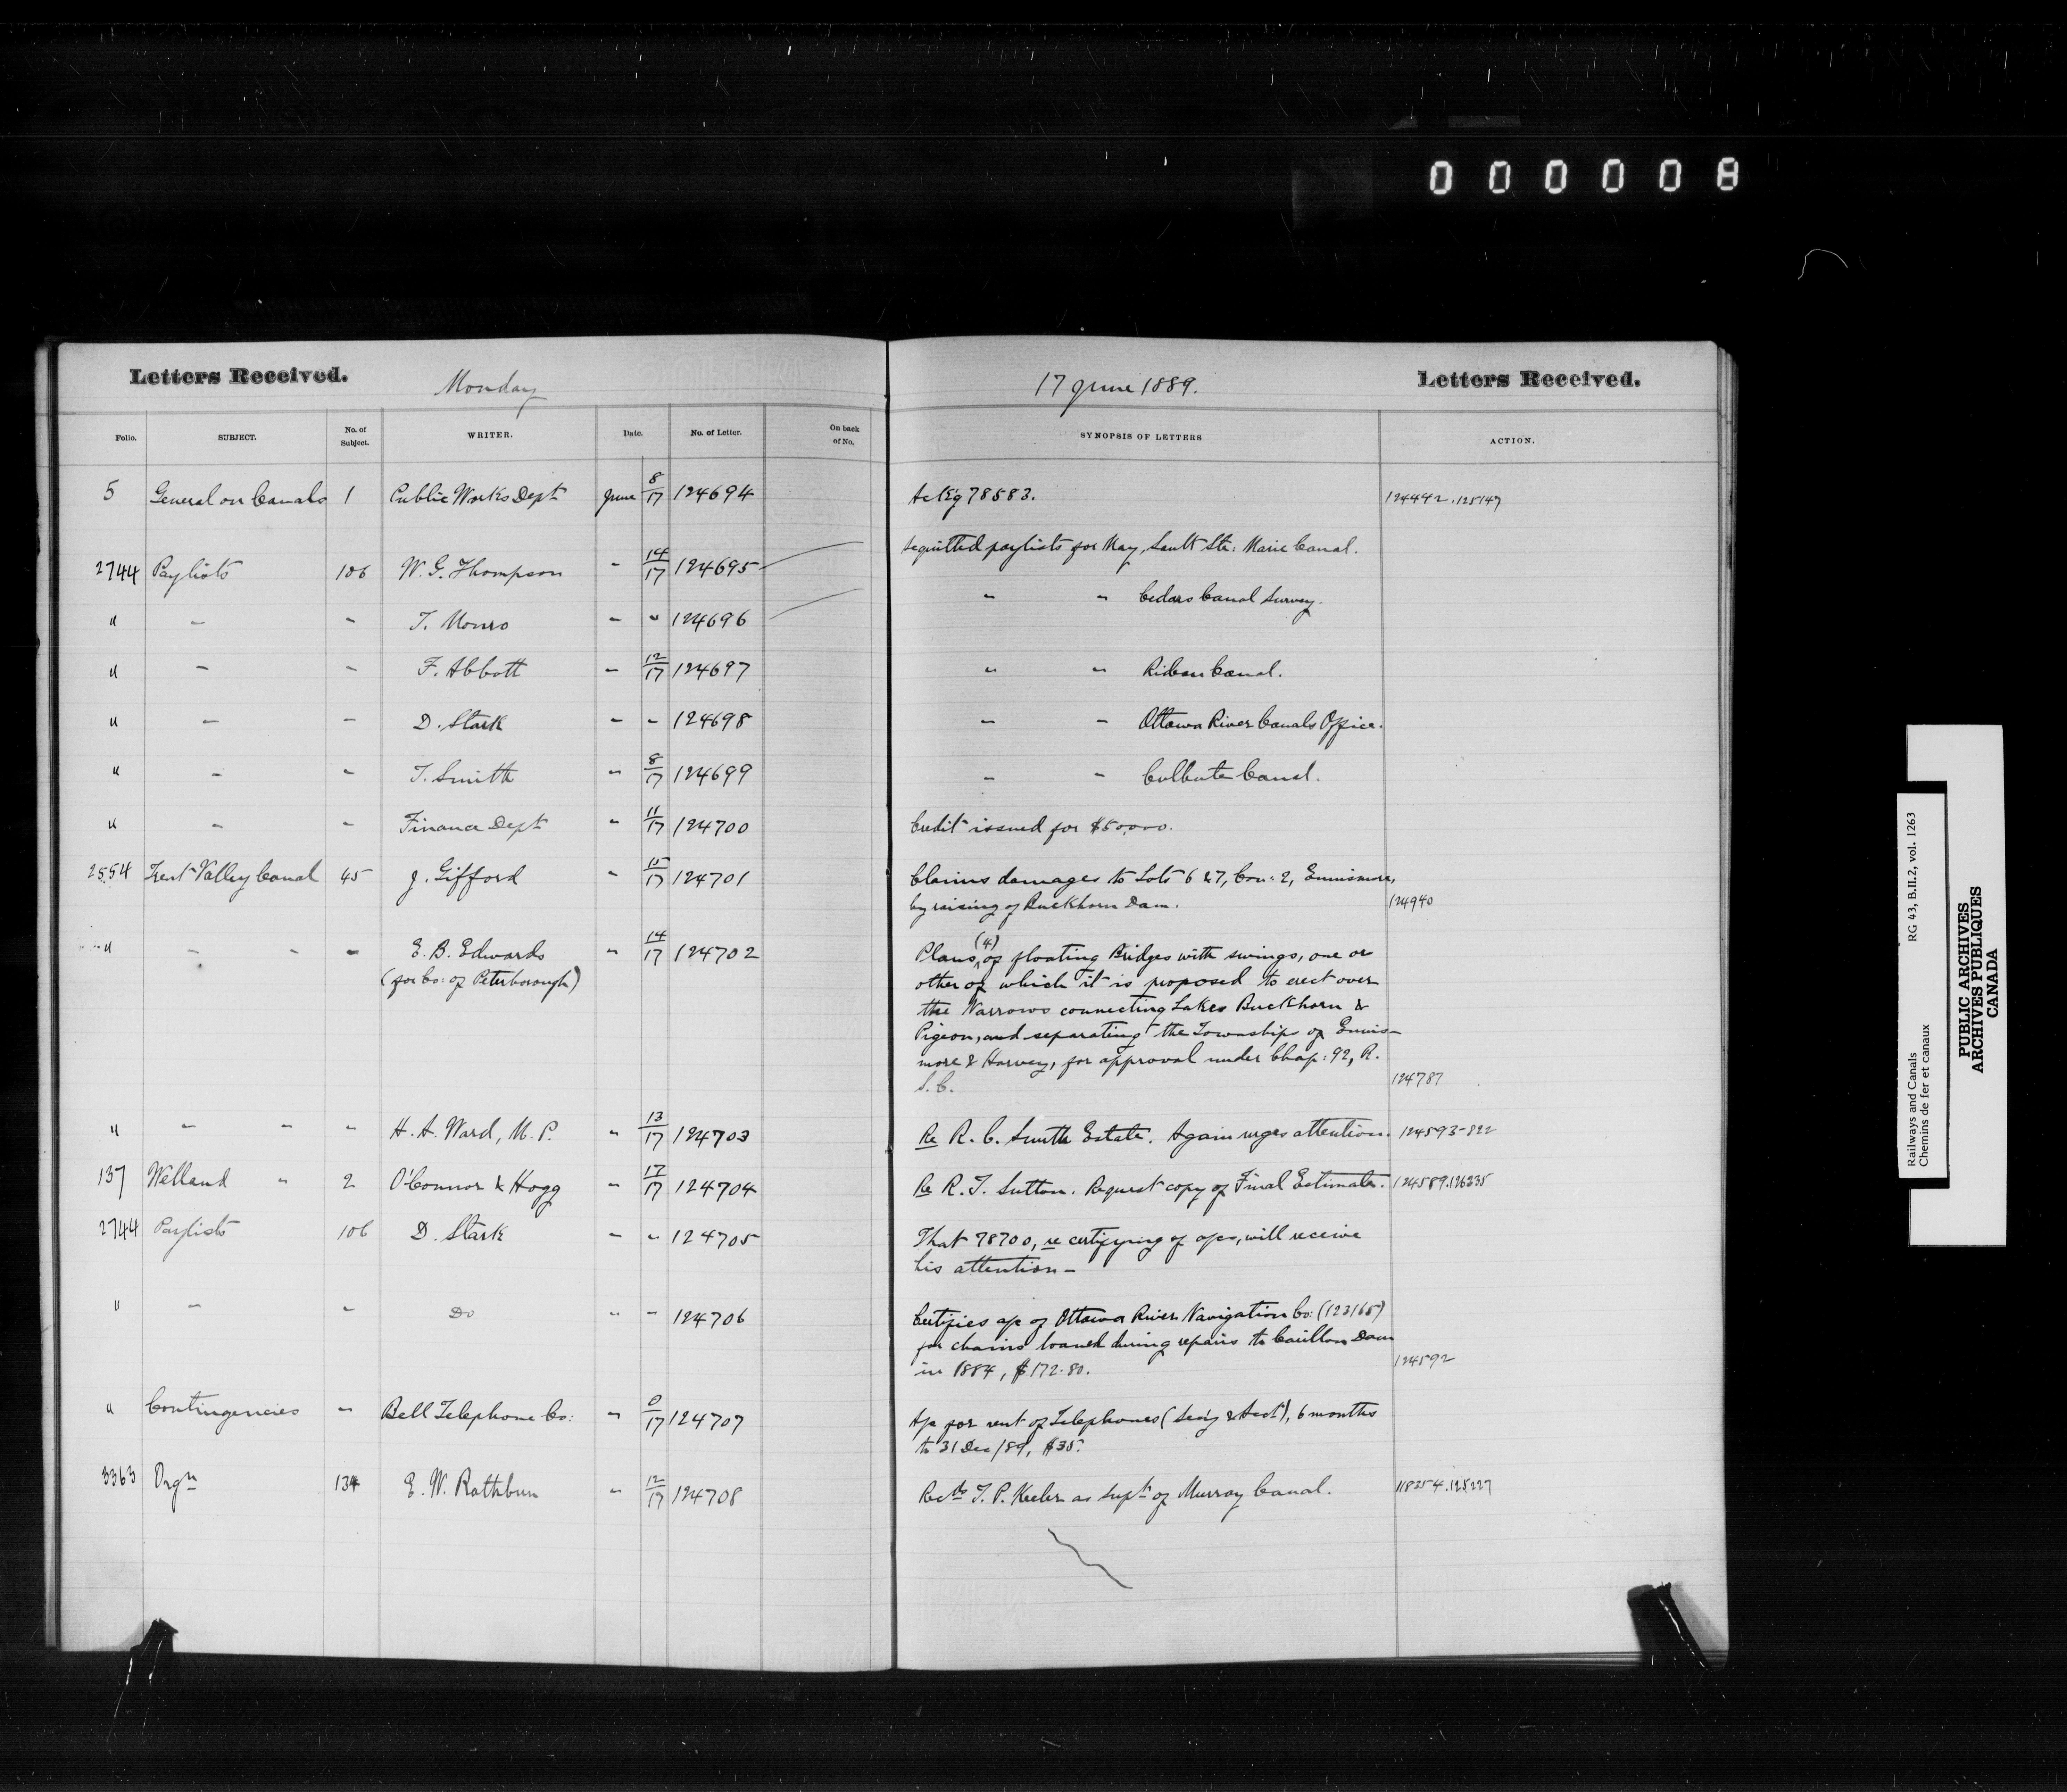 0 0 0 0 0 8
Letters Received. Monday 17 June 1889. Letters Received.
Folio. SUBJECT. No. of Subject. WRITER. Date. No. of Letter. On back of No. SYNOPSIS OF LETTERS ACTION.
5 General on Canals 1 Public Works Dept June 8/17 124694 Ackg 78583. 124442.125147
2744 Paylists 106 W. G. Thompson " 14/17 124695 Acquitted paylists for May, Sault Ste: Marie Canal.
" " " T. Monro " " 124696 " " Cedars Canal Survey.
" " " F. Abbott " 12/17 124697 " " Rideau Canal.
" " " D. Stark " " 124698 " " Ottawa River Canals Office.
" " " T. Smith " 8/17 124699 " " Culbute Canal.
" " " Finance Dept " 11/17 124700 Credit issued for $50,000.
2554 Trent Valley Canal 45 J. Gifford " 15/17 124701 Claims damages to Lots 6 & 7, Con: 2, Ennismore,
by raising of Buckhorn Dam. 124940
" " " " E. B. Edwards " 14/17 124702 Plans (4) of floating Bridges with swings, one or
(for Co: of Peterborough) other of which it is proposed to erect over
the Narrows connecting Lakes Buckhorn &
Pigeon, and separating the Townships of Ennis-
more & Harvey, for approval under Chap: 92, R.
S. C. 124787
" " " " H. A. Ward, M. P. " 13/17 124703 Re R. C. Smith Estate. Again urges attention. 124593-822
137 Welland " 2 O'Connor & Hogg " 17/17 124704 Re R. T. Sutton. Request copy of Final Estimate. 124589.126335
2744 Paylists 106 D. Stark " " 124705 That 78700, re certifying of a/cs, will receive
his attention -
" " " Do " " 124706 Certifies a/c of Ottawa River Navigation Co: (123165)
for chains loaned during repairs to Carillon Dam
in 1884, $172.80. 124592
" Contingencies " Bell Telephone Co: " 0/17 124707 A/c for rent of Telephones (Secy & Acct), 6 months
to 31 Dec/89, $35.
3363 Orgn 134 E. W. Rathbun " 12/17 124708 Recds T. P. Keeler as Supt of Murray Canal. 118254.125227
Railways and Canals RG 43, B.II.2, vol. 1263
Chemins de fer et canaux
PUBLIC ARCHIVES
ARCHIVES PUBLIQUES
CANADA